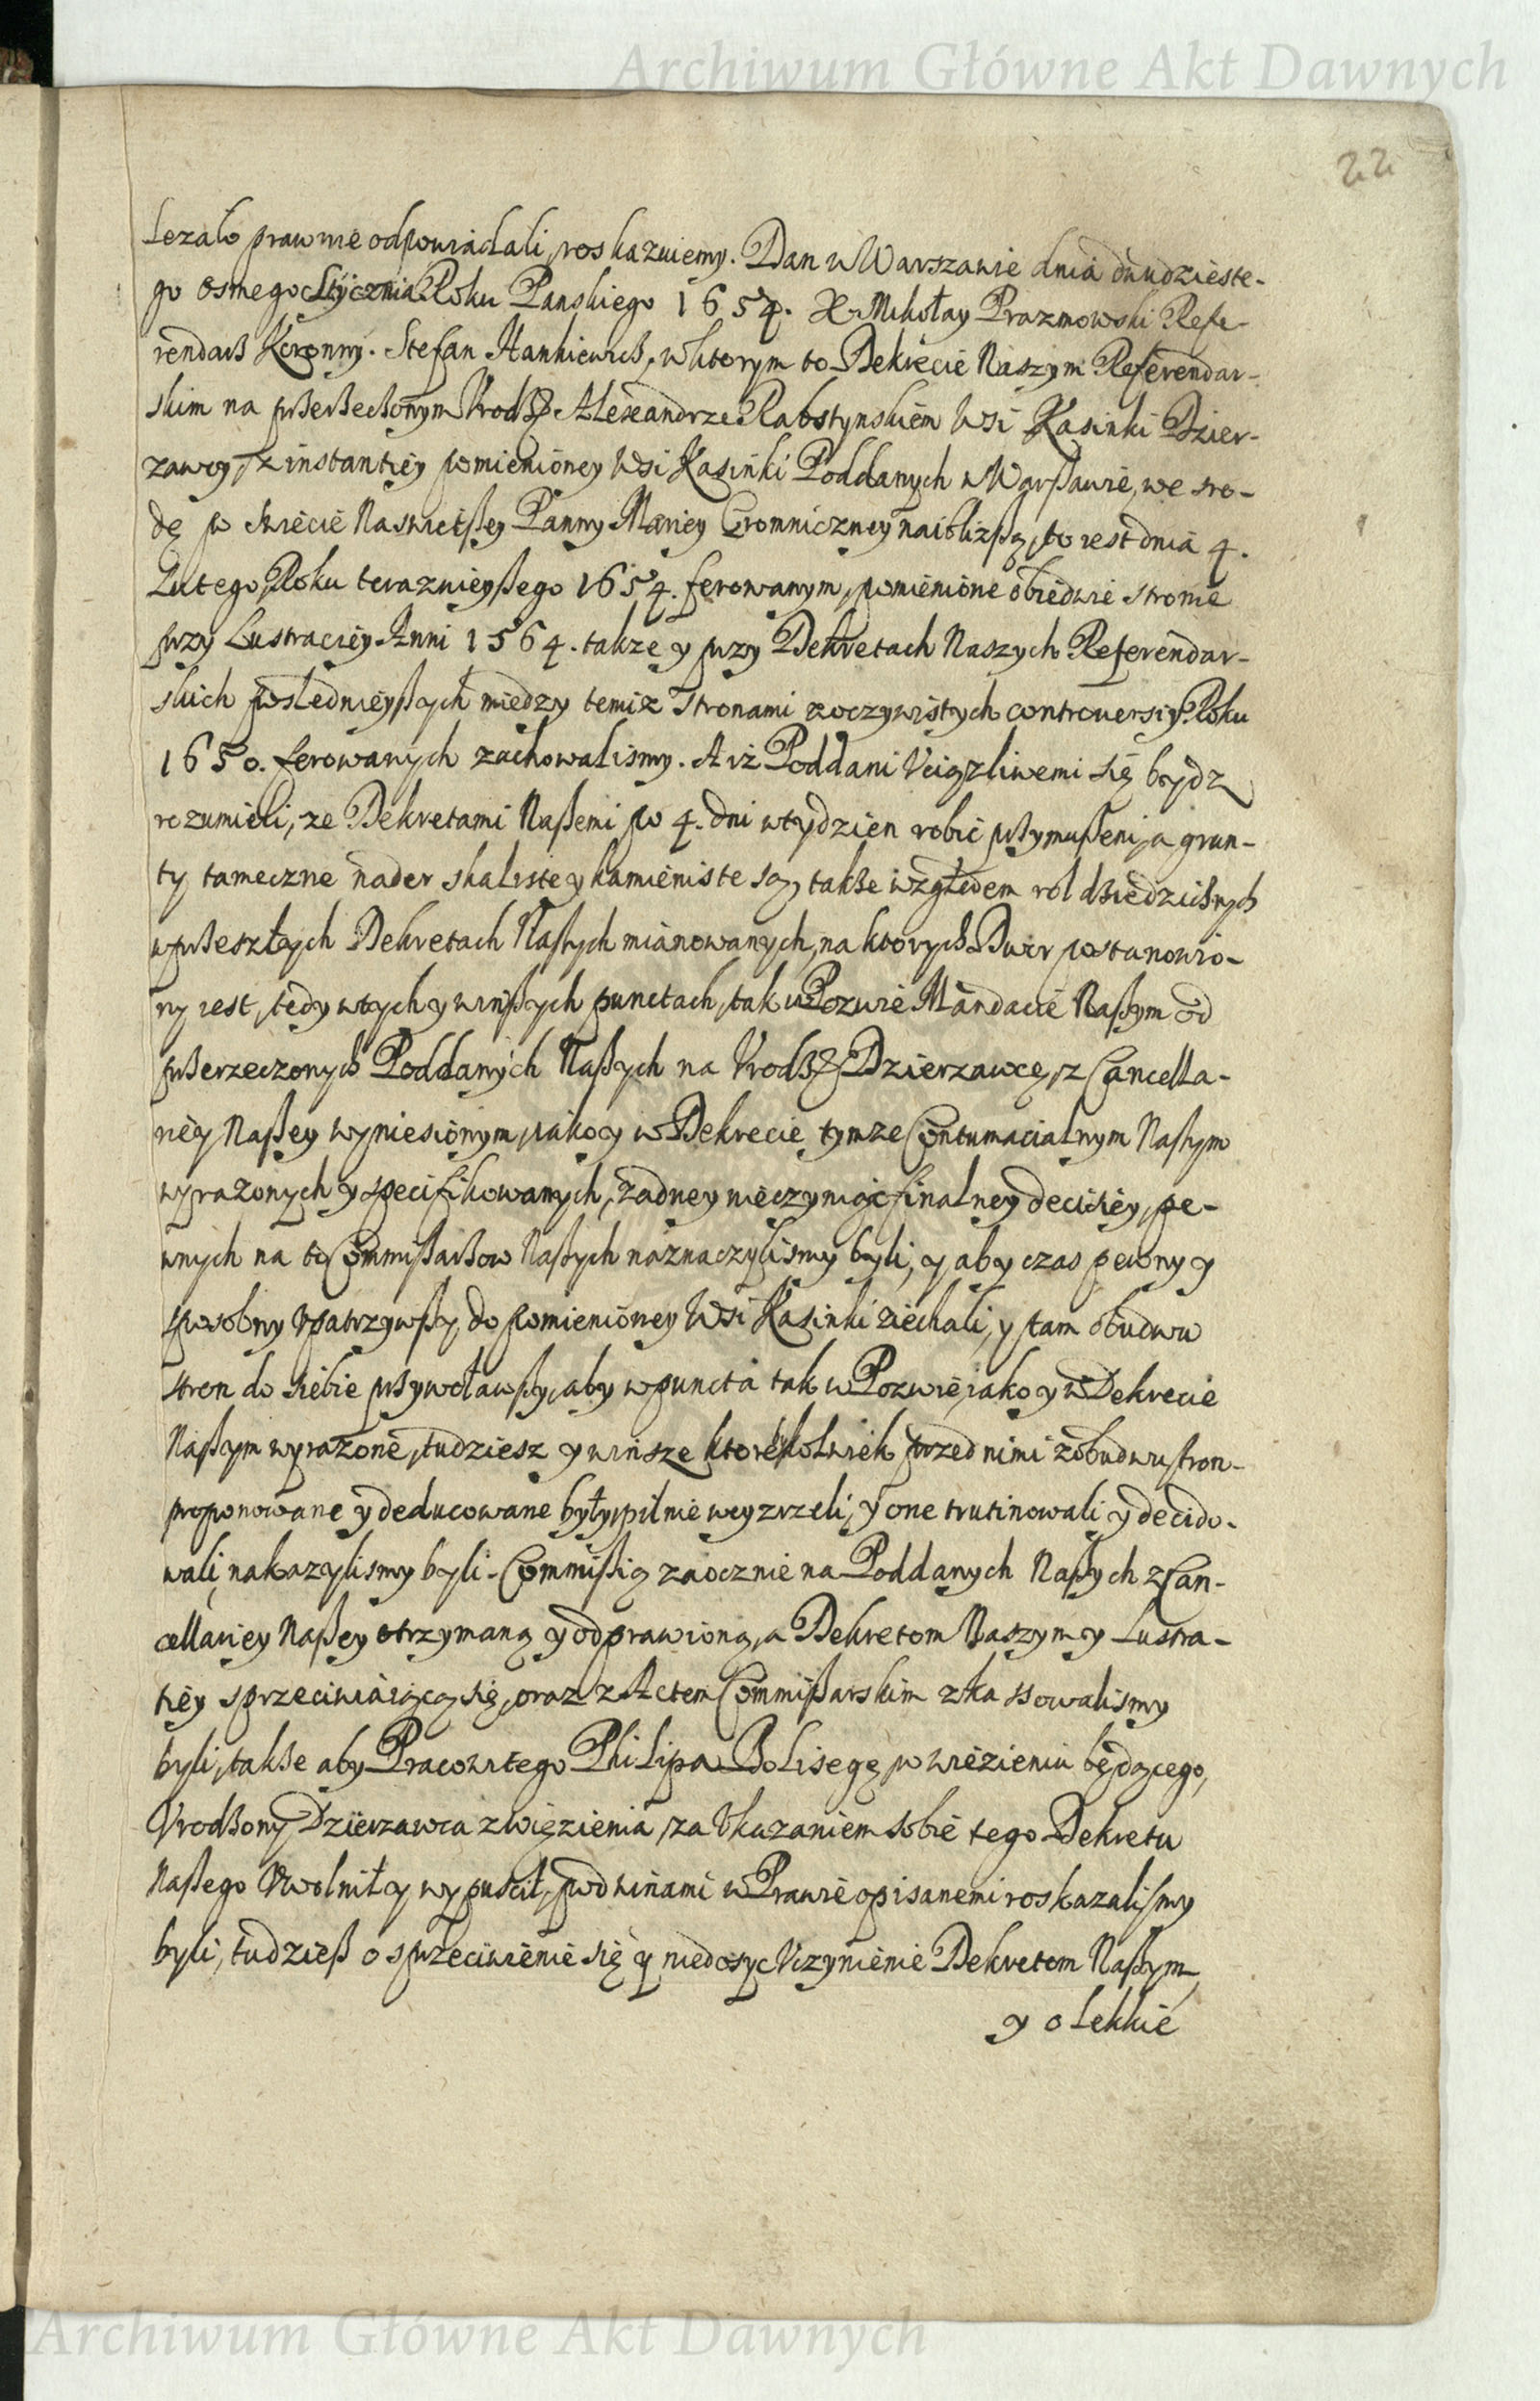 Archiwum Główne Akt Dawnych
22
Lezało prawnie odpowiadali, roskazuiemy. Dan w Warszawie dnia dwudzieste-
go osmego Stycznia Roku Panskiego 1654. X. Mikołay Prazmowski Refe-
rendarß Koronny. Stefan Hankiewicß, w ktorym to Dekrecie Naszym Referendar-
skim na przerzeczonym Urodz. Alexandrze Rabstynskiem Wsi Kasinki Dzier-
zawcy, z instantiey pomienioney Wsi Kasinki Poddanych w Warßawie, we sro-
dę po Swiecie Naswiętßey Panny Mariey Gromniczney naiblizßą, to iest dnia 4.
Lutego, Roku teraznieyßego 1654. ferowanym, pomienione obiedwie stronie
przy Lustraciey Anni 1564. takze y przy Dekretach Naszych Referendar-
skich poslednieyßych miedzy temiz Stronami z oczywistych controuersiy Roku
1650. ferowanych zachowalismy. A iż Poddani Uciązliwemi się bydz
rozumieli, ze Dekretami Naßemi po 4. dni w tydzien robić przymußeni, a grun-
ty tameczne nader skaliste y kamieniste są, także względem rol dziedzicznych
w przeszłych Dekretach Naßych mianowanych, na ktorych Dwor postanowio-
ny iest, tedy w tych y winßych punctach, tak w Pozwie Mandacie Naßym od
przerzeczonych Poddanych Naßych na Urodz. Dzierzawcę, z Cancella-
riey Naßey wyniesionym, iako y w Dekrecie tymze Contumacialnym Naßym
wyrazonych y specifikowanych, żadney nieczyniąc finalney decisiey, pe-
wnych na to Commißarzow Naßych naznaczylismy byli, y aby czas pewny y
sposobny upatrzywßy, do pomienioney Wsi Kasinki ziechali, y tam obudwu
stron do siebie przywoławßy, aby w puncta tak w Pozwie, iako y w Dekrecie
Naßym wyrażone, tudziesz y winsze ktorekolwiek przed nimi z obudwu stron-
proponowane y deducowane były, pilnie weyzrzeli, y one trutinowali y decido-
wali, nakazylismy byli. Commißią zaocznie na Poddanych Naßych z Can-
cellariey Naßey otrzymaną y odprawioną, a Dekretom Naszym y Lustra-
tiey sprzeciwiaiącą się, oraz z Actem Commißarskim zkassowalismy
byli, takze aby Pracowitego Philipa Bolisegę, w więzieniu będącego,
Urodzony Dzierzawca z więzienia, za Ukazaniem sobie tego Dekretu
Naßego Uwolnił y wypuścił, pod winami w Prawie opisanemi roskazalismy
byli, tudzieß o sprzeciwienie się y niedosyc Uczynienie Dekretom Naßym,
y o lekkie
Archiwum Główne Akt Dawnych